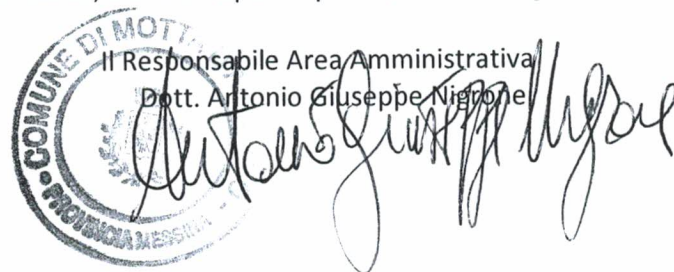 Il Responsabile Area Amministrativa
Dott. Antonio Giuseppe Nigrone
COMUNE DI MOTTA
PROVINCIA MESSINA
Antonio Giuseppe Nigrone